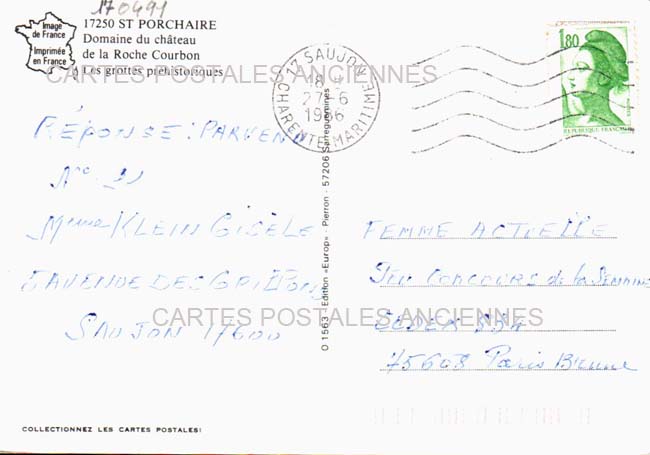 170491
Image
de France
Imprimée
en France
17250 ST PORCHAIRE
Domaine du château
de la Roche Courbon
Les grottes préhistoriques
17 SAUJON
18 H
27-6
1986
CHARENTE-MARITIME
1,80
REPUBLIQUE FRANÇAISE
CARTES POSTALES ANCIENNES
RÉPONSE: PARVENU
KLEIN GISÈLE
AVENUE DES
SAUJON 17600
D 1563 - Edition «Europ» - Pierron - 57206 Sarreguemines
FEMME ACTUELLE
JEU CONCOURS de la SEMAINE
CEDEX
75608 Paris Brune
CARTES POSTALES ANCIENNES
COLLECTIONNEZ LES CARTES POSTALES!